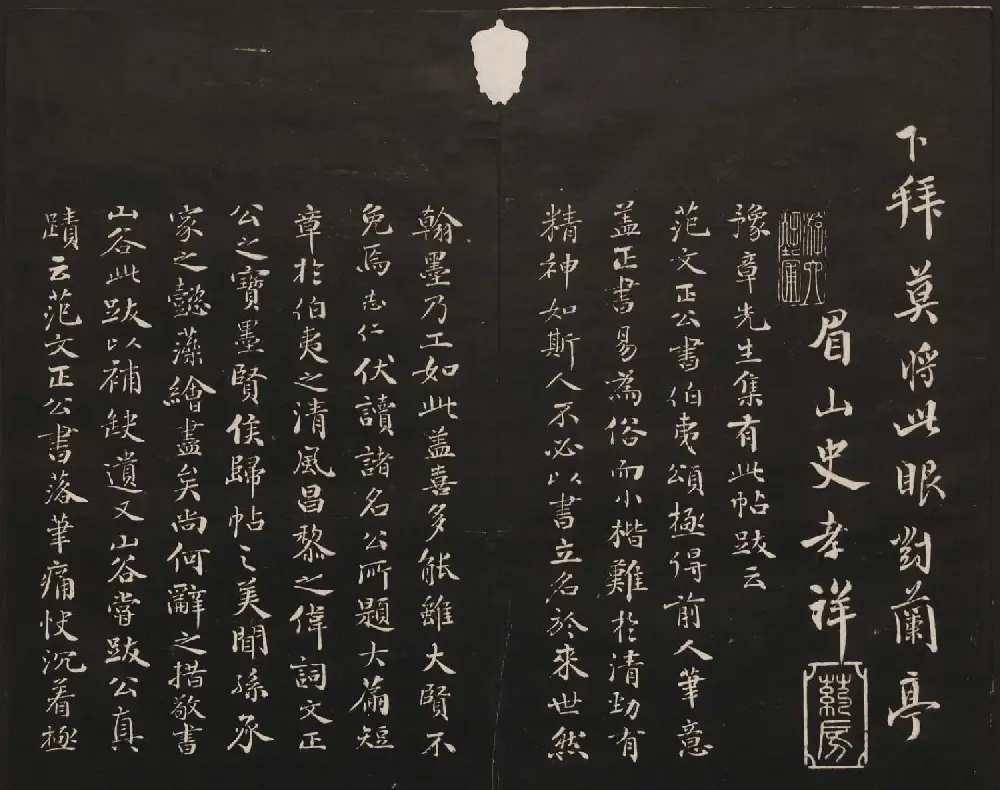 下拜莫將此眼對蘭亭
眉山史孝祥
葯房
豫章先生集有此帖跋云
范文正公書伯夷頌極得前人筆意
盖正書易為俗而小楷難於清劲有
精神如斯人不必以書立名於來世然
翰墨乃工如此盖喜多能雖大賢不
免焉志仁伏讀諸名公所題大篇短
章於伯夷之清風昌黎之偉詞文正
公之寶墨賢侯歸帖之美聞孫承
家之懿藻繪盡矣尚何辭之措敬書
山谷此跋以補缺遺又山谷嘗跋公真
蹟云范文正公書落筆痛快沉着極